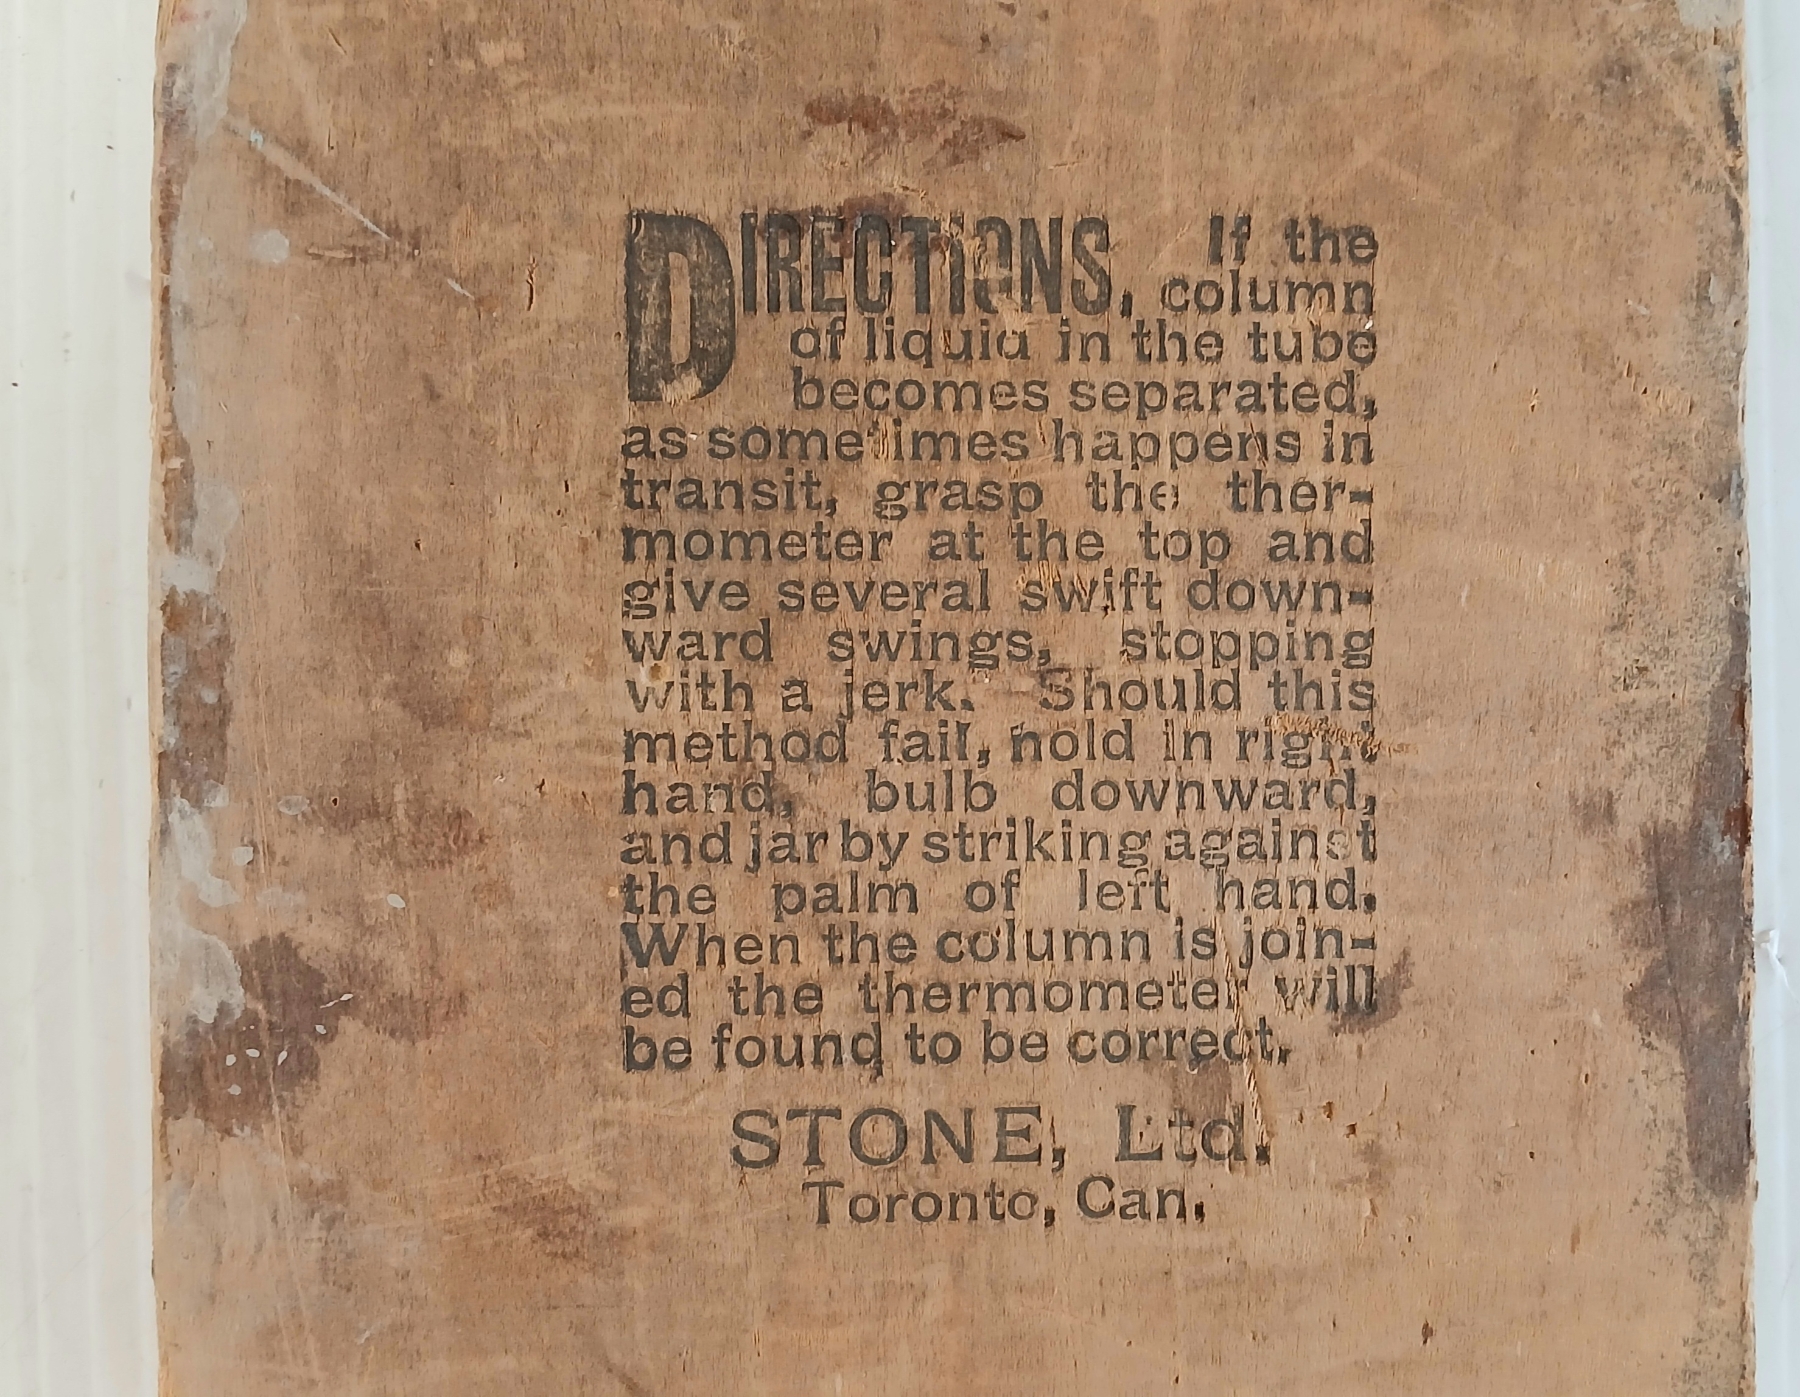 DIRECTIONS. If the
column
of liquid in the tube
becomes separated,
as sometimes happens in
transit, grasp the ther-
mometer at the top and
give several swift down-
ward swings, stopping
with a jerk. Should this
method fail, hold in right
hand, bulb downward,
and jar by striking against
the palm of left hand.
When the column is join-
ed the thermometer will
be found to be correct.
STONE, Ltd.
Toronto, Can.